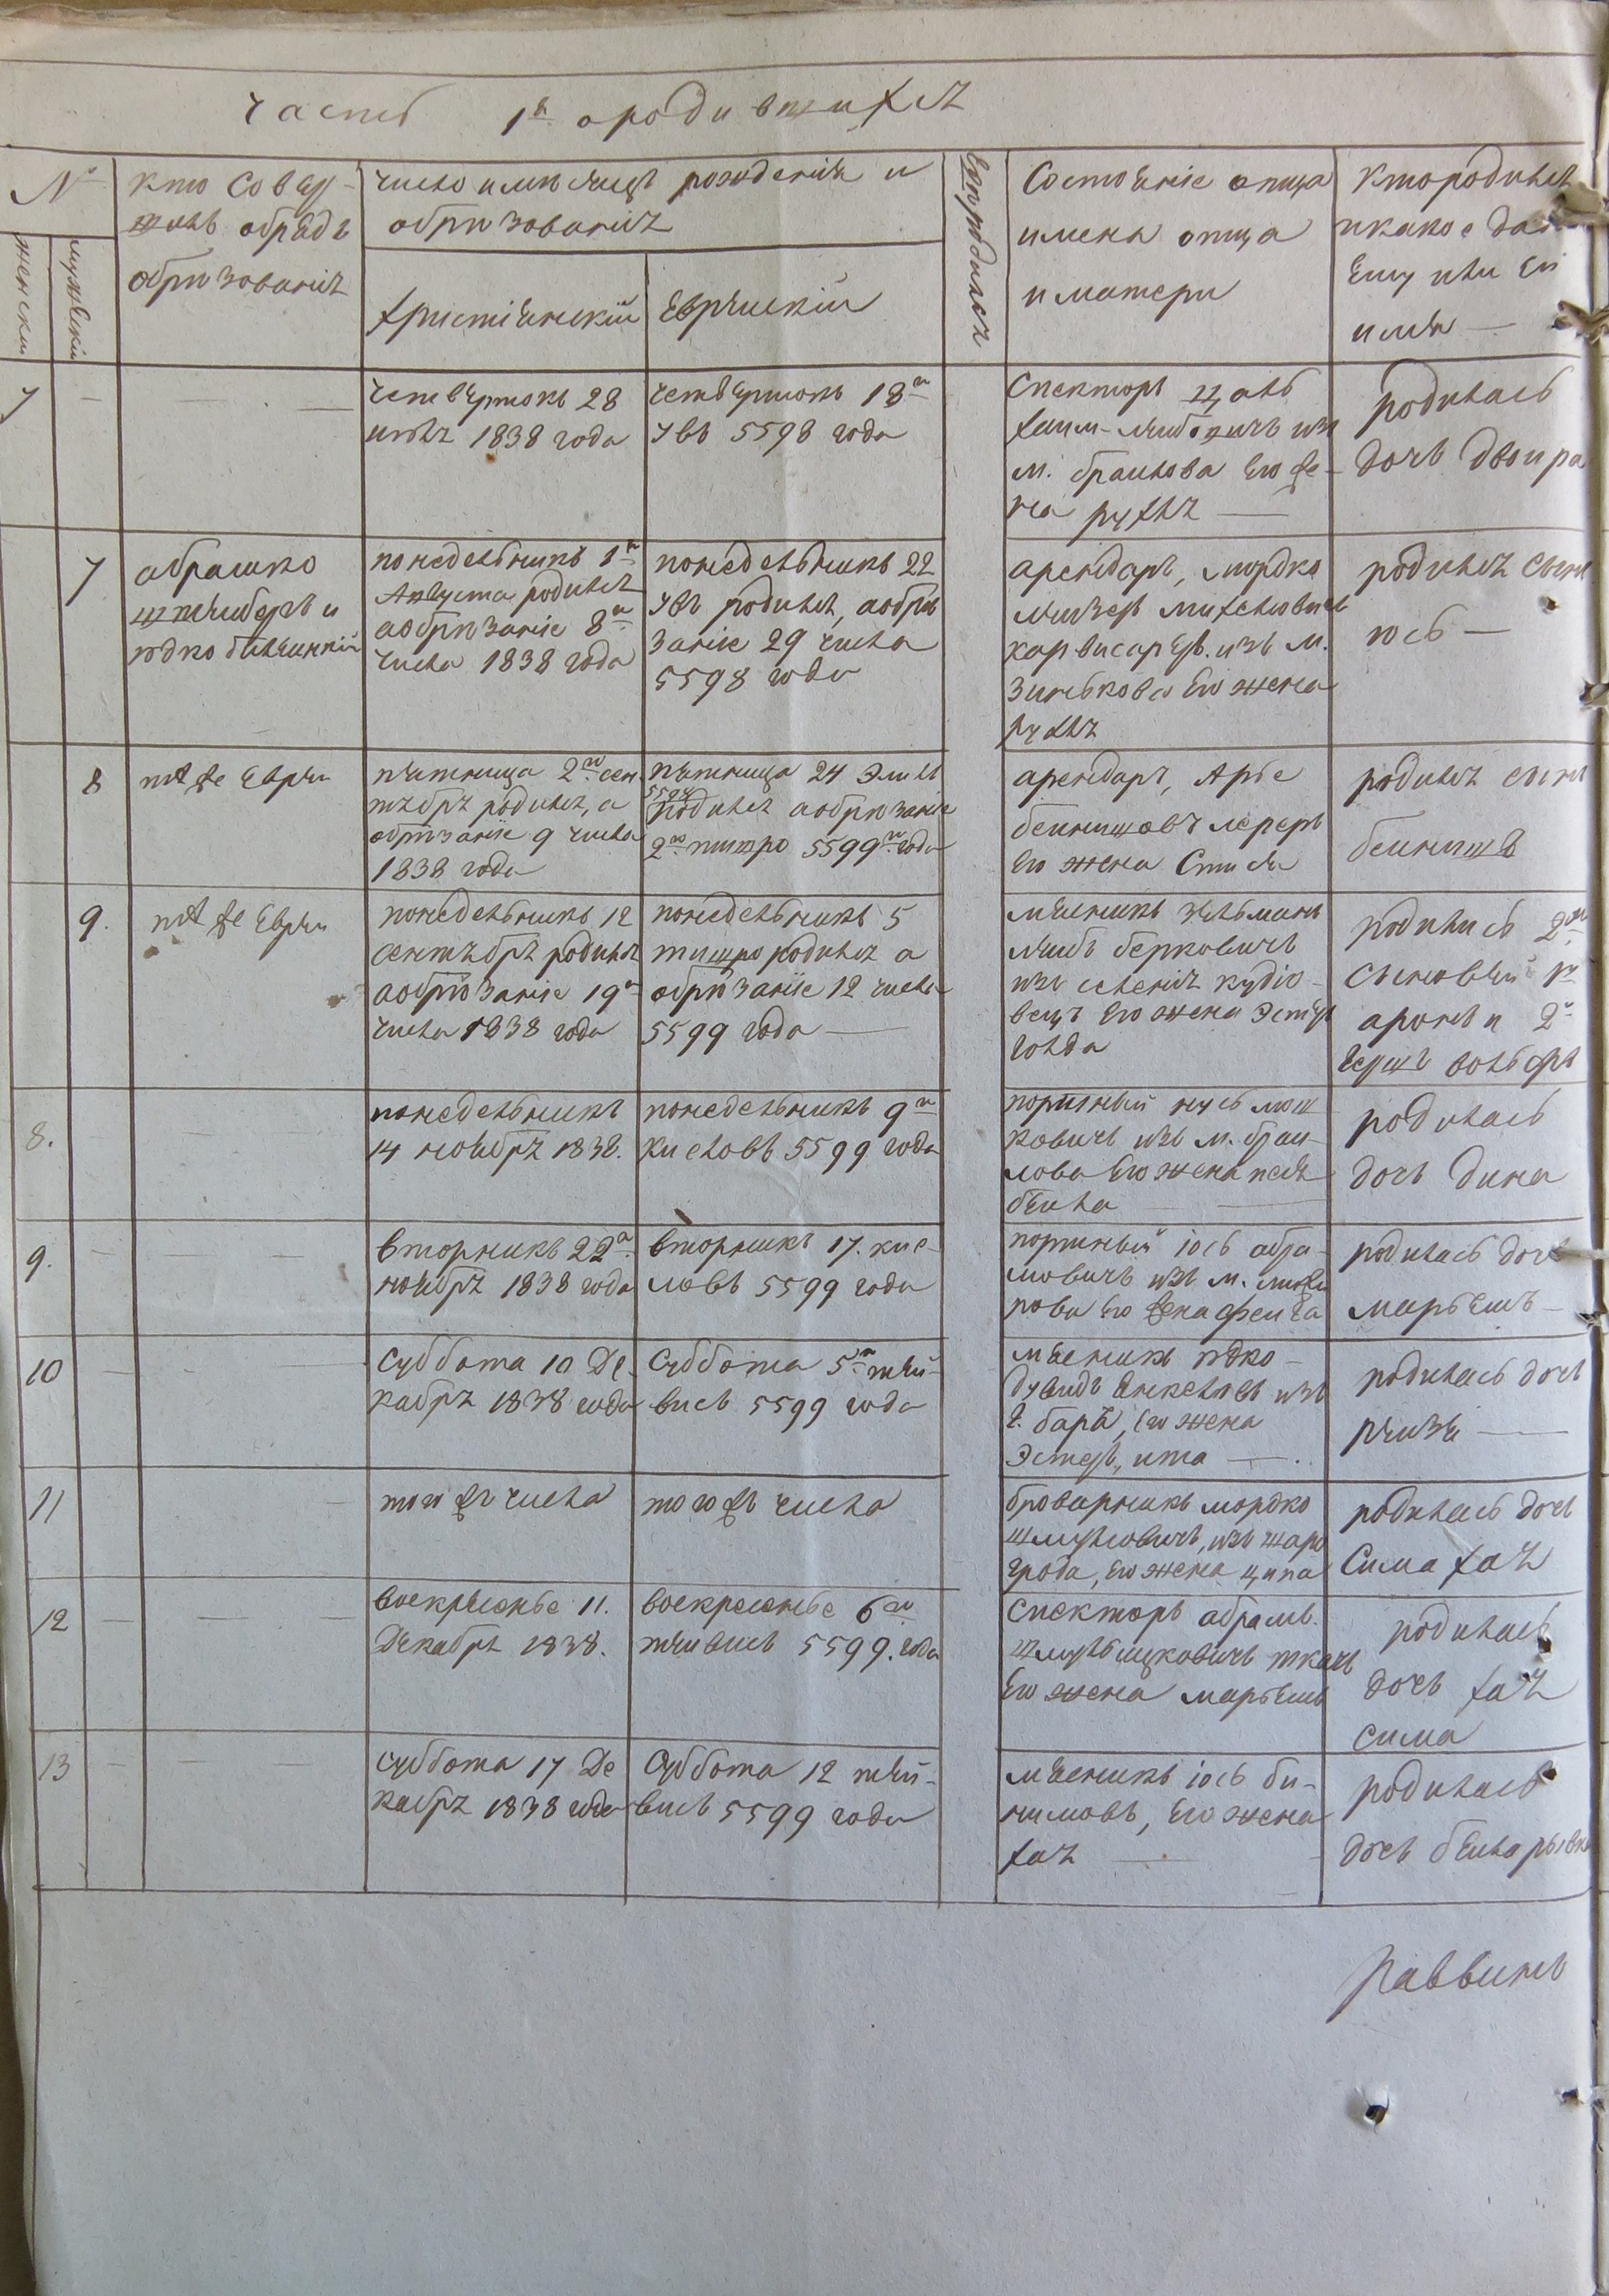 Часть 1я ородившихся
№
женскій
мужескій
кто совер-
шилъ обрядъ
обрѣзованія
число имѣсяцъ рожденія и
обрѣзованія
христіянскій
Еврейскій
Гдѣродился
Состояніе отца
имена отца
и матери
Ктородился
икакое дано
Ему или Ей
имя —
7
четвертокъ 28
июля 1838 года
четвертокъ 18го
Увъ 5598 года
Спекторъ
хаим-
м. браилова Его же-
на рухля —
родилась
дочь двоира
7
абрашко
и
юдко
понедельникъ 1го
Августа родился
аобрѣзаніе 8го
числа 1838 года
понедельникъ 22
Увъ родился, аобрѣ
заніе 29 числа
5598 года
арендаръ, мордко
лейзеръ михелювичъ
изъ м.
зинькова Его жена
рухля
родился сынъ
юсь —
8
тѣ же Евреи
пятница 2го сен
тябръ родился, а
обрѣзаніе 9 числа
1838 года
пятница 24 Элилъ
5598
родился аобрѣзаніе
2го тишро 5599го года
арендаръ, Арье
бейнишовъ лереръ
Его жена
родился сынъ
бейнишъ
9.
тѣ же Евреи
понедельникъ 12
сентябръ родился
аобрѣзаніе 19го
числа 1838 года
понедельникъ 5
тишро родился а
обрѣзаніе 12 числа
5599 года —
мяснікъ зельманъ
лейбъ берковичъ
изъ селенія кудіо-
вецъ Его жена Эстеръ
голда
родились 2ва
сыновьей 1й
аронъ и 2й
Гершъ вольфъ
8.
понедельникъ
14 ноябръ 1838.
понедельникъ 9го
кислювъ 5599 года
портный нусь мош
ковичъ изъ м. браи-
лова Его жена песя
бейла
родилась
дочь дина
9.
вторникъ 22го
ноябръ 1838 года
вторникъ 17. кис-
лювъ 5599 года
портный іось абра-
мовичъ изъ м.
рова Его жена фейга
родилась дочь
марьемъ —
10
суббота 10 Де-
кабръ 1838 года
суббота 5го тей-
висъ 5599 года
мясникъ юдко-
дувидъ янкелювъ изъ
г. бара, Его жена
Эстеръ, ита —
родилась дочь
рейзя —
11
того жъ числа
того жъ числа
броварникъ мордко
шмулювичъ, изъ шаро
грода, Его жена ципа
родилась дочь
Сима хая
12
воскресенье 11.
Декабръ 1838.
воскресенье 6го
тейвисъ 5599. года
спекторъ абрамъ.
шмуль ицковичъ ткачъ
Его жена марьемъ
родилась
дочь хая
сима
13
суббота 17 Де
кабръ 1838 года
суббота 12 тей-
висъ 5599 года
мясникъ іось би-
нимовъ, Его жена
хая —
родилась
дочь бейларывка
раввинъ